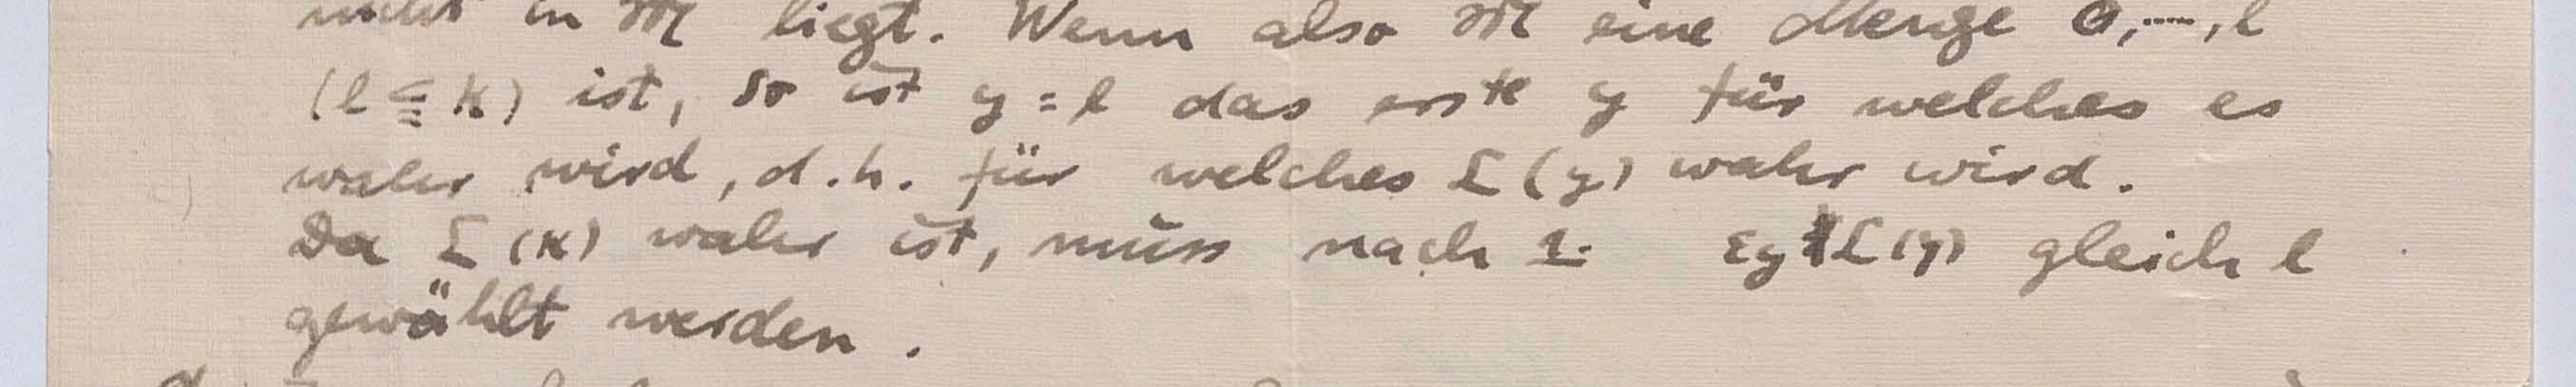 nicht in 𝔐 liegt. Wenn also 𝔐 eine Menge 0, ..., l
(l ≦ k) ist, so ist y = l das erste y für welches es
wahr wird, d. h. für welches 𝔏(y) wahr wird.
Da 𝔏(k) wahr ist, muss nach 1. εy 𝔏(y) gleich l
gewählt werden.